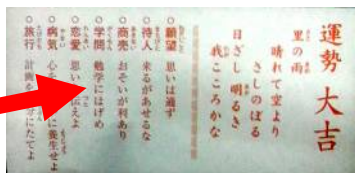 運勢 大吉
里の雨
晴れて空より
さしのぼる
日ざし 明るき
我こころかな
○願望 思いは適ず
○待人 来るがあせるな
○商売 おそいが利あり
○学問 勉学にはげめ
○恋愛 思い 伝えよ
○病気 心を に養生せよ
○旅行 計画を 分にたてよ